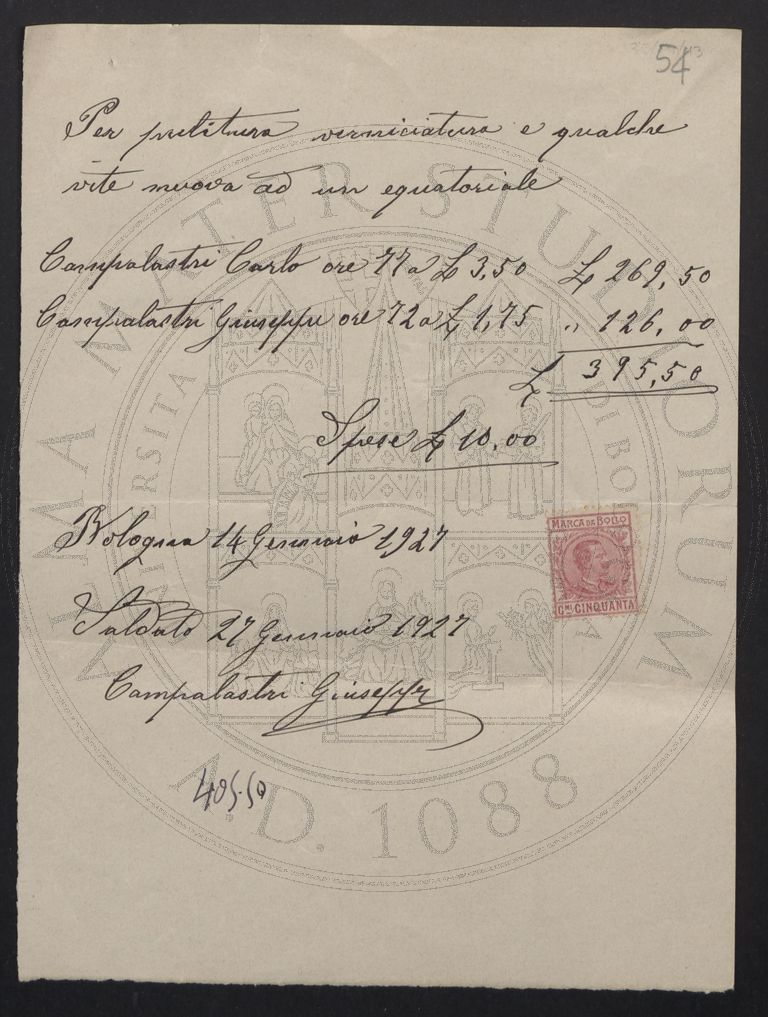 54
Per pulitura verniciatura e qualche
vite nuova ad un equatoriale
Campalastri Carlo ore 77 a £ 3,50 £ 269,50
Campalastri Giuseppe ore 72 a £ 1,75 " 126,00
£ 395,50
Spese £ 10,00
Bologna 14 Gennaio 1927
MARCA DA BOLLO
CMI CINQUANTA
Saldato 27 Gennaio 1927
Campalastri Giuseppe
405.50
ALMA MATER STUDIORUM
A.D. 1088